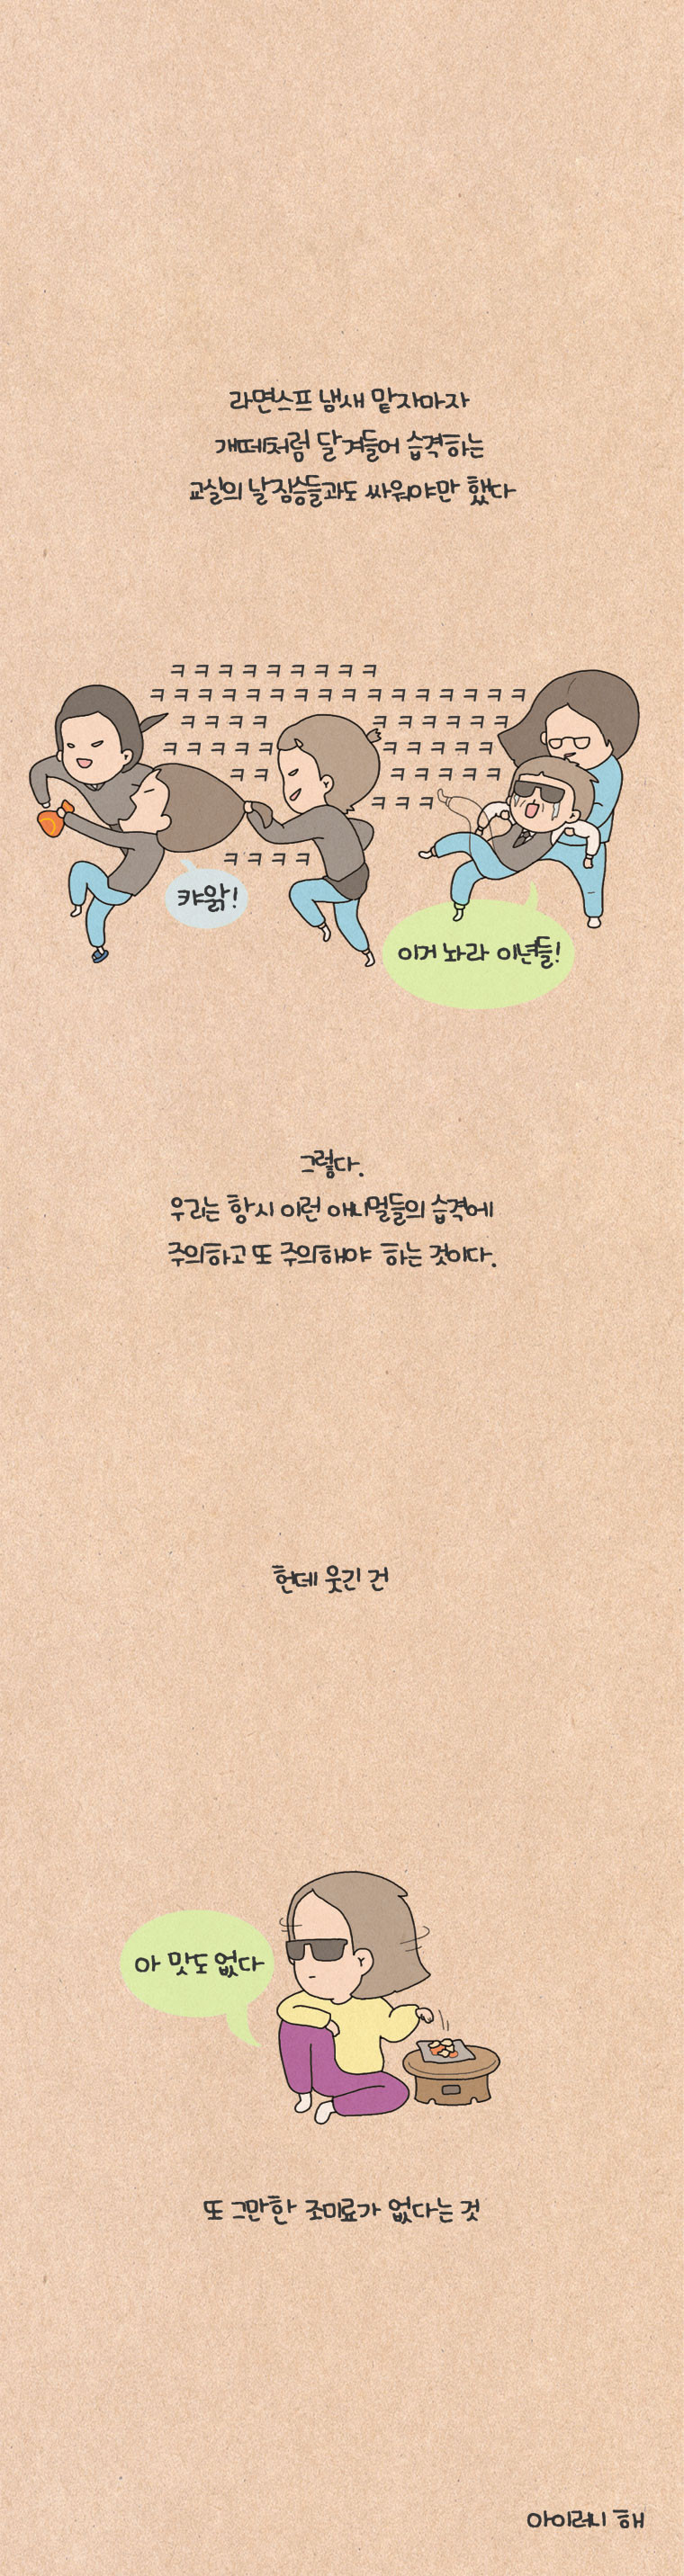 라면스프 냄새 맡자마자
개떼처럼 달겨들어 습격하는
교실의 날짐승들과도 싸워야만 했다
ㅋㅋㅋㅋㅋㅋㅋㅋㅋ
ㅋㅋㅋㅋㅋㅋㅋㅋㅋㅋㅋㅋㅋㅋㅋㅋ
ㅋㅋㅋㅋ ㅋㅋㅋㅋㅋㅋ
ㅋㅋㅋㅋㅋ ㅋㅋㅋㅋㅋ
ㅋㅋ ㅋㅋㅋㅋㅋ
ㅋㅋㅋ
ㅋㅋㅋㅋ
캬앍!
이거 놔라 이년들!
그렇다.
우리는 항시 이런 애니멀들의 습격에
주의하고 또 주의해야 하는 것이다.
헌데 웃긴 건
아 맛도 없다
또 그만한 조미료가 없다는 것
아이러니 해